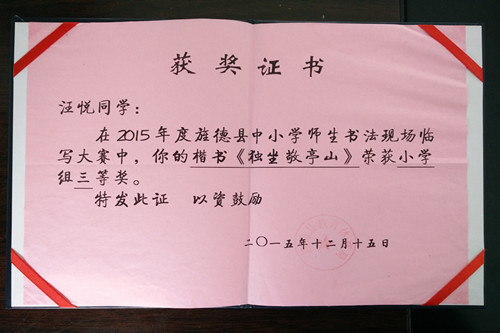 获奖证书
汪悦同学：
在2015年度旌德县中小学师生书法现场临
写大赛中，你的楷书《独坐敬亭山》荣获小学
组三等奖。
特发此证 以资鼓励
二〇一五年十二月十五日